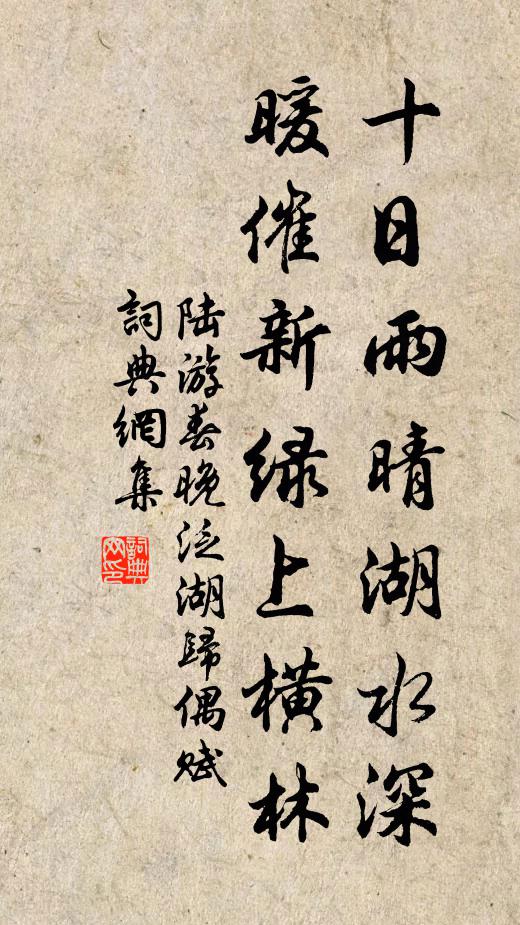 十日雨晴湖水深
暖催新绿上横林
陆游春晚泛湖歸偶赋
詞典網集
詞典网印